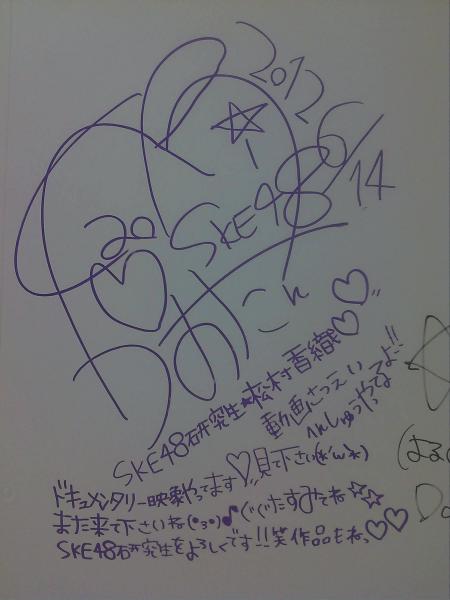 2012
6/14
20
SKE48
かおこん
SKE48研究生★松村香織♡♡
動画さつえい
へんしゅうやってるよ!!
ドキュメンタリー映像やってます♡見て下さい(*'ω'*)
また来て下さいね(°з°)♪ぐぐたすみてね☆☆
SKE48研究生をよろしくです!!笑 作品もねっ♡♡